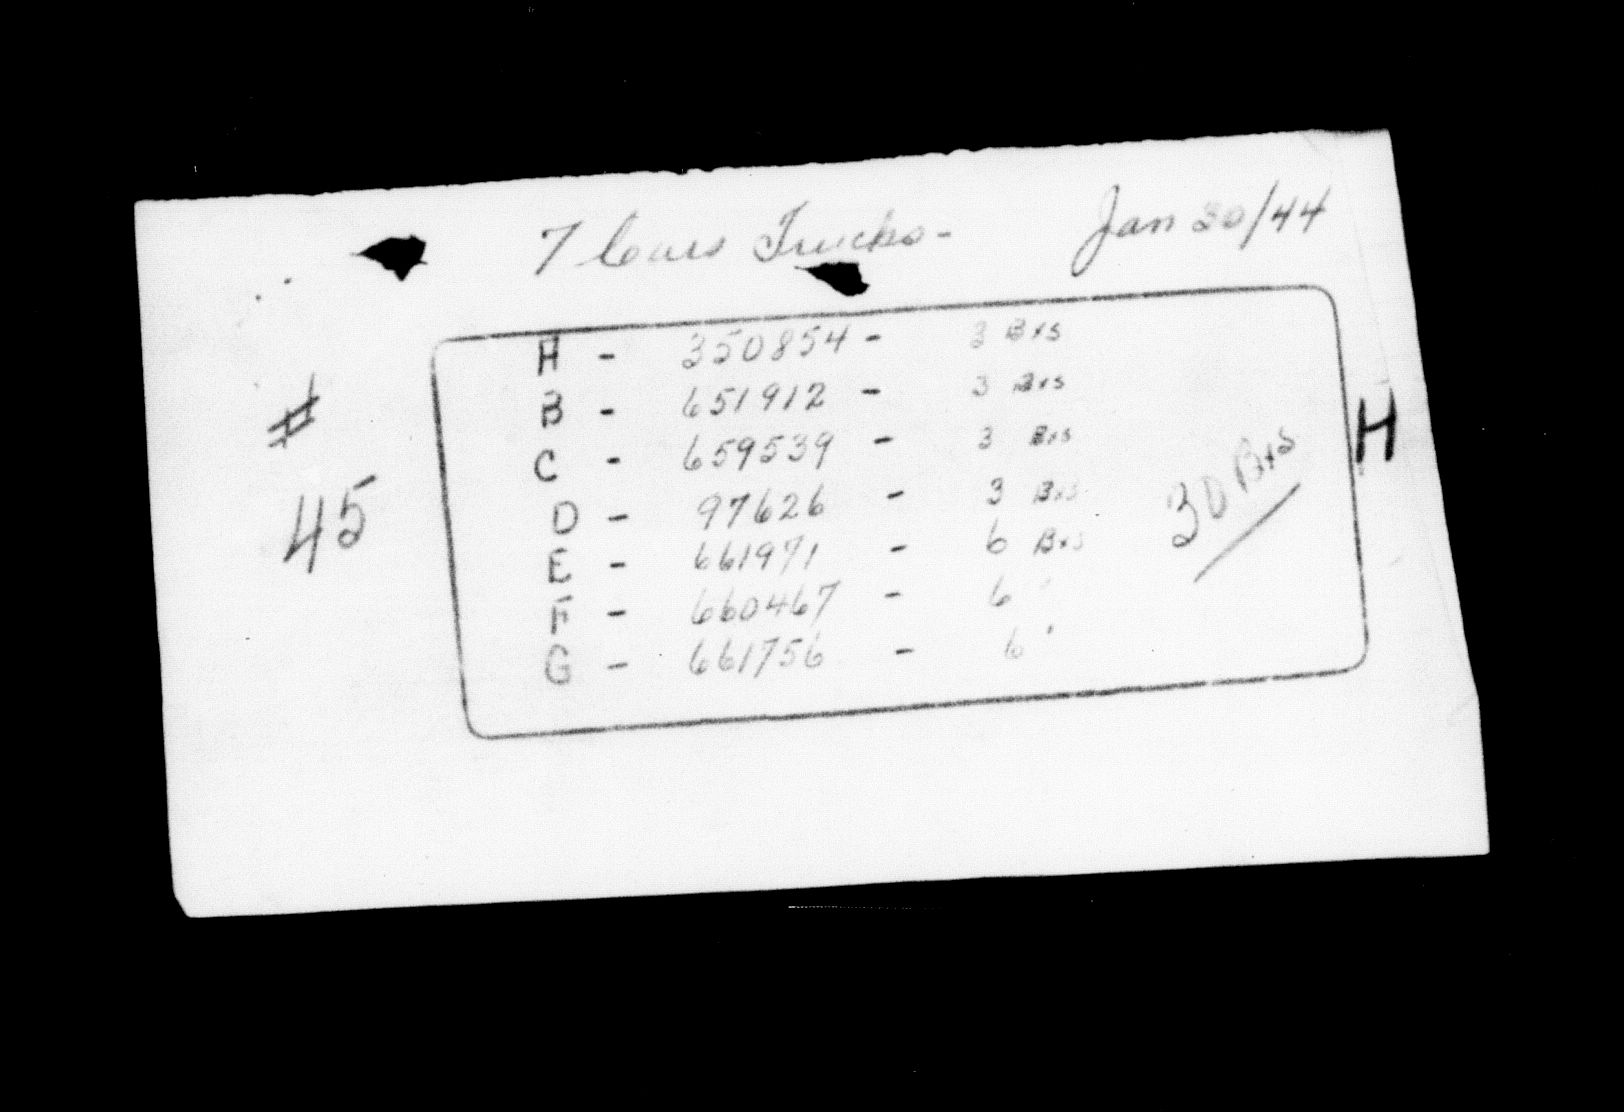 7 Cars Trucks - Jan 30/44
H - 350854 - 3 Bxs
B - 651912 - 3 Bxs
C - 659539 - 3 Bxs
D - 97626 - 3 Bxs
E - 661971 - 6 Bxs
F - 660467 - 6 "
G - 661756 - 6 "
# 45
30 Bxs
H